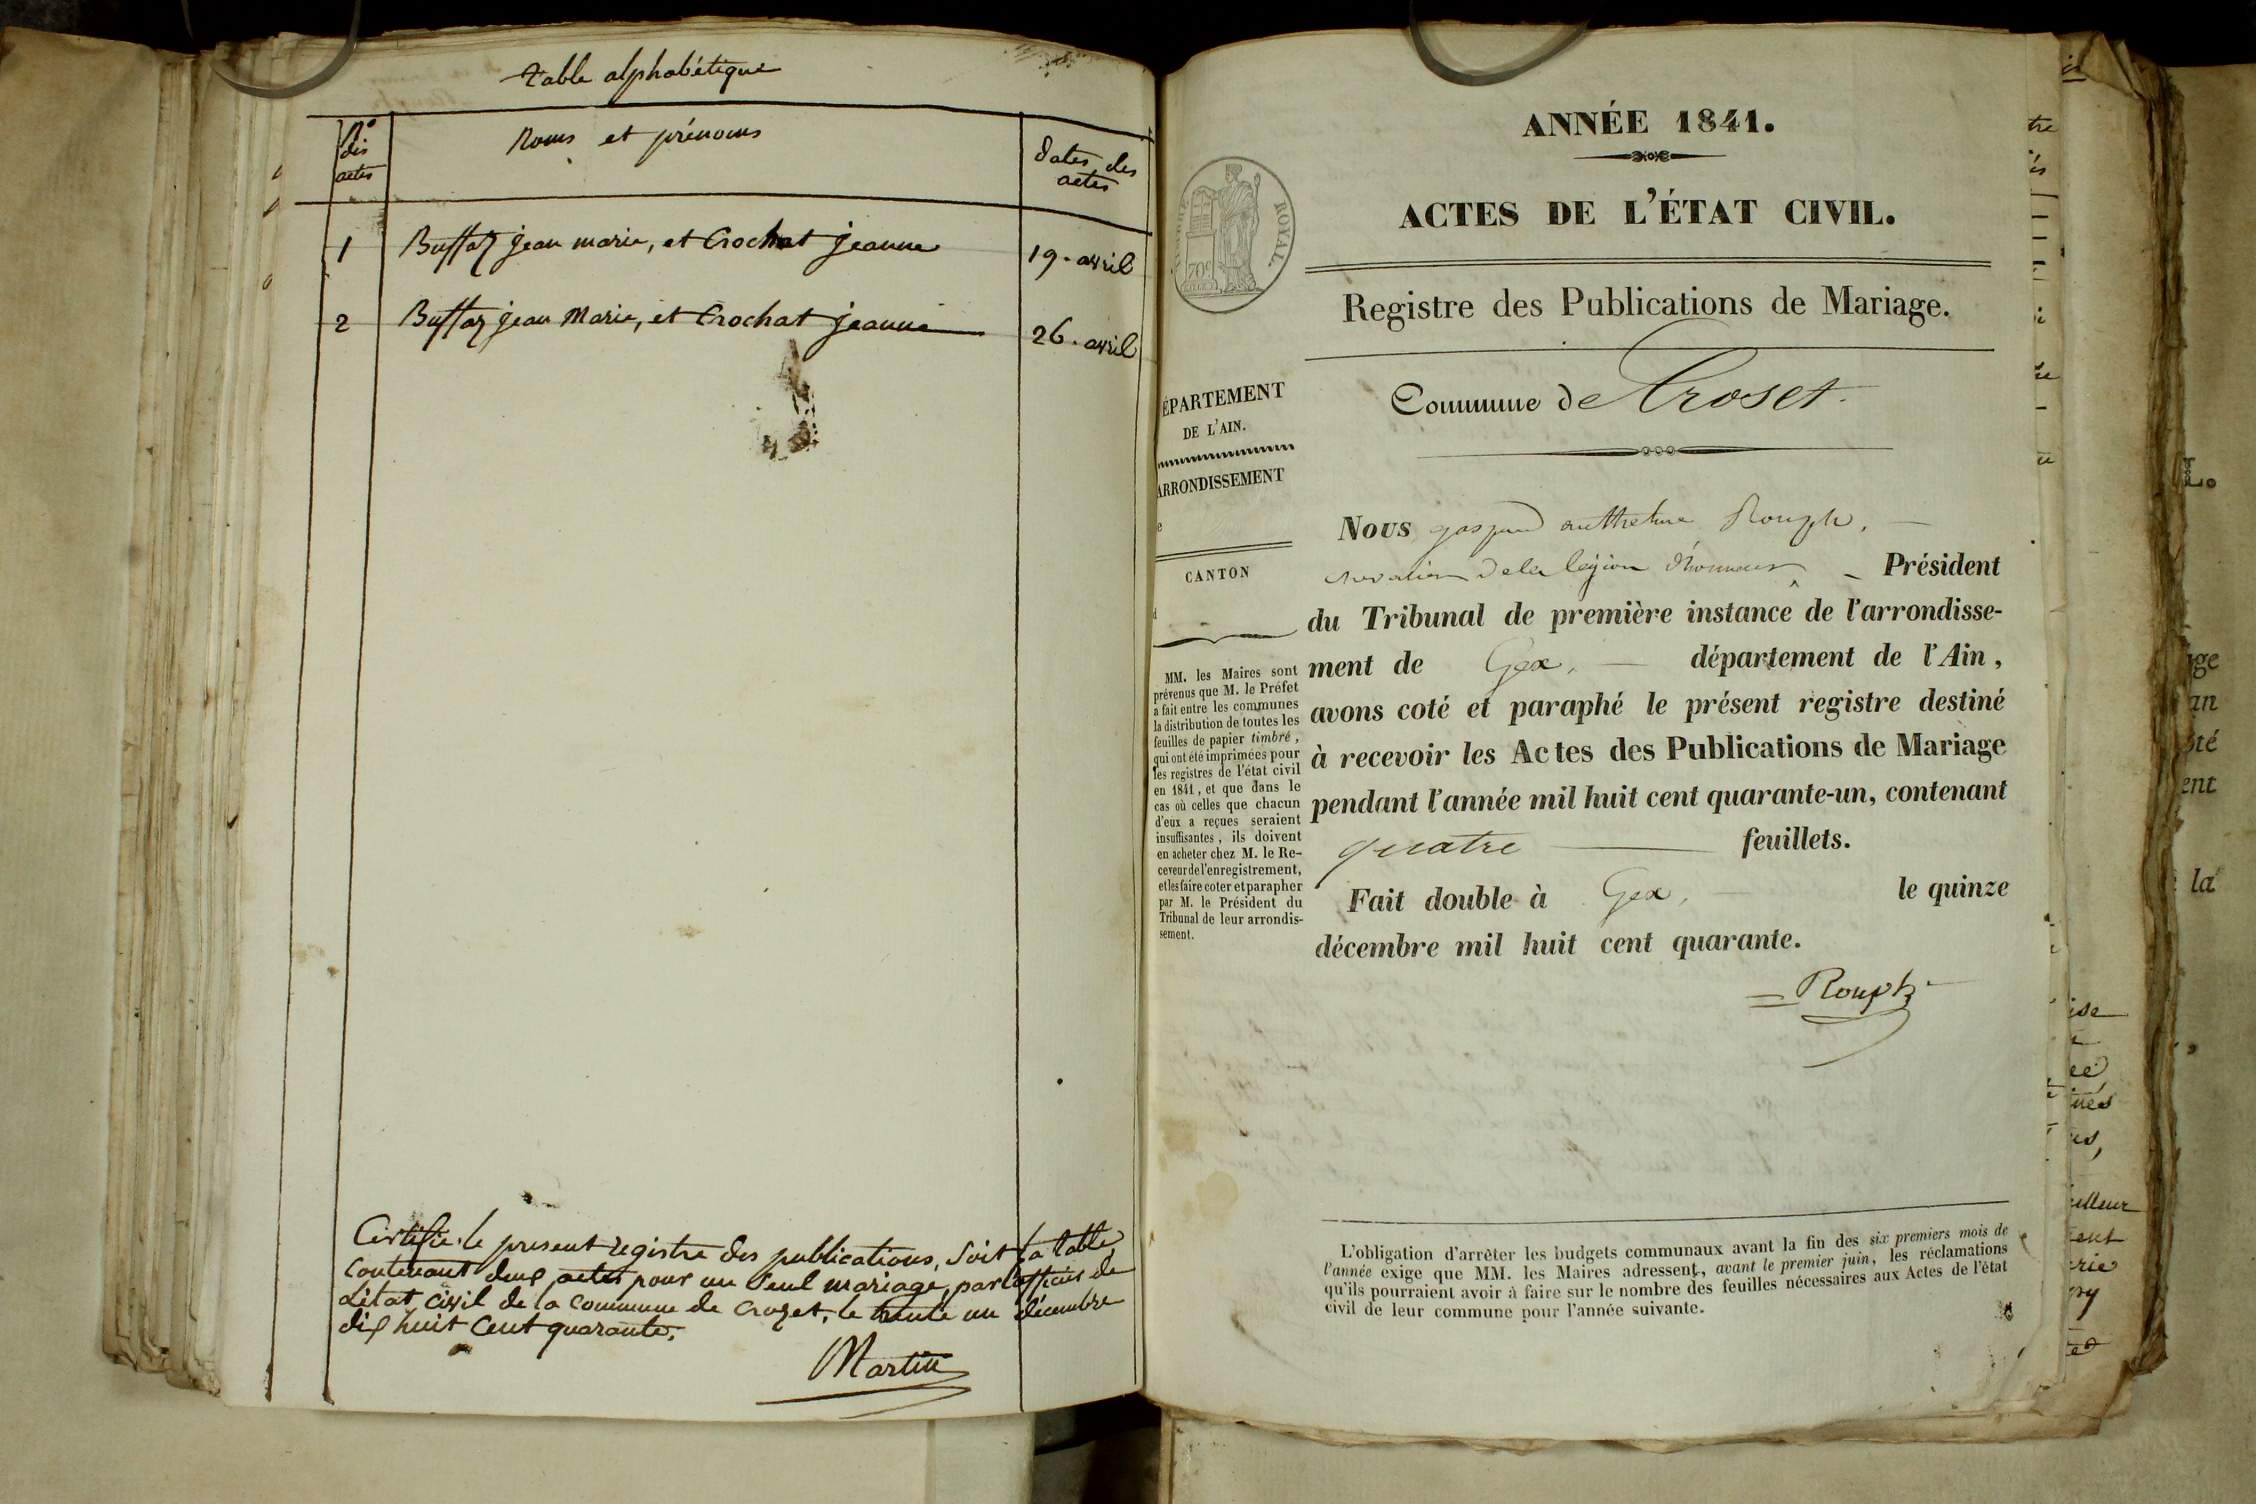 Table alphabétique
Nos des actes
Noms et prénoms
Dates des actes
1 Buffaz jean marie, et Crochat jeanne 19. avril
2 Buffaz jean Marie, et Crochat jeanne 26. avril
Certifié le present registre des publications, soit la table,
contenant deux actes pour un seul mariage, par l'officier de
L'état civil de la commune de Crozet, le trente un décembre
dix huit cent quarante.
Martin
ANNÉE 1841.
ACTES DE L'ÉTAT CIVIL.
ROYAL.
70c
Registre des Publications de Mariage.
Commune de Croset.
ÉPARTEMENT
DE L'AIN.
ARRONDISSEMENT
CANTON
MM. les Maires sont
prévenus que M. le Préfet
a fait entre les communes
la distribution de toutes les
feuilles de papier timbré,
qui ont été imprimées pour
les registres de l'état civil
en 1841, et que dans le
cas où celles que chacun
d'eux a reçues seraient
insuffisantes, ils doivent
en acheter chez M. le Re-
ceveur de l'enregistrement,
et les faire coter et parapher
par M. le Président du
Tribunal de leur arrondis-
sement.
Nous gaspard Rouph,
chevalier de la légion d'honneur, Président
du Tribunal de première instance de l'arrondisse-
ment de Gex, département de l'Ain,
avons coté et paraphé le présent registre destiné
à recevoir les Actes des Publications de Mariage
pendant l'année mil huit cent quarante-un, contenant
quatre feuillets.
Fait double à Gex, le quinze
décembre mil huit cent quarante.
Rouph
L'obligation d'arrêter les budgets communaux avant la fin des six premiers mois de
l'année exige que MM. les Maires adressent, avant le premier juin, les réclamations
qu'ils pourraient avoir à faire sur le nombre des feuilles nécessaires aux Actes de l'état
civil de leur commune pour l'année suivante.